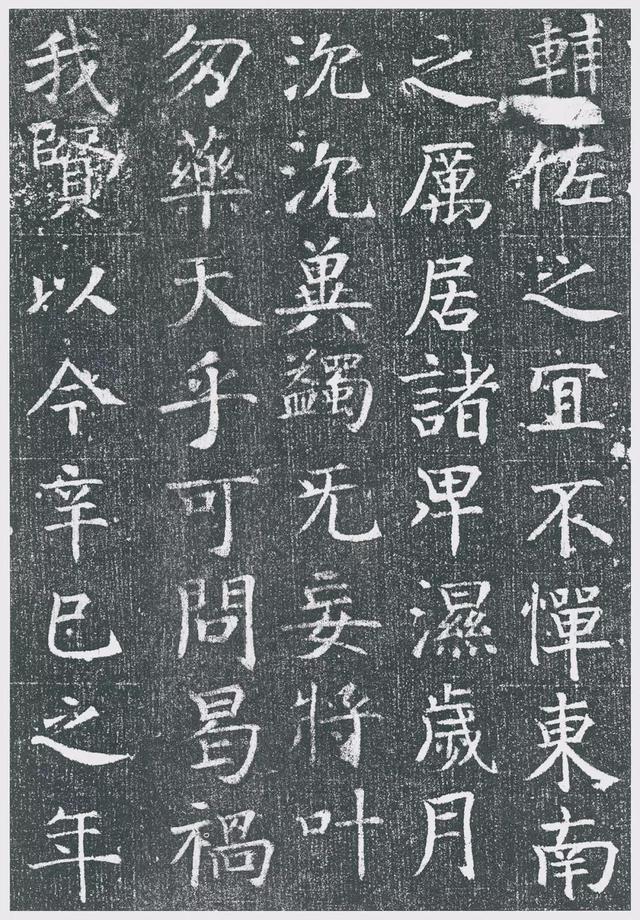 輔佐之宜不憚東南
之厲居諸卑濕歲月
沉沉冀蠲无妄將叶
勿藥天乎可問曷禍
我賢以今辛巳之年